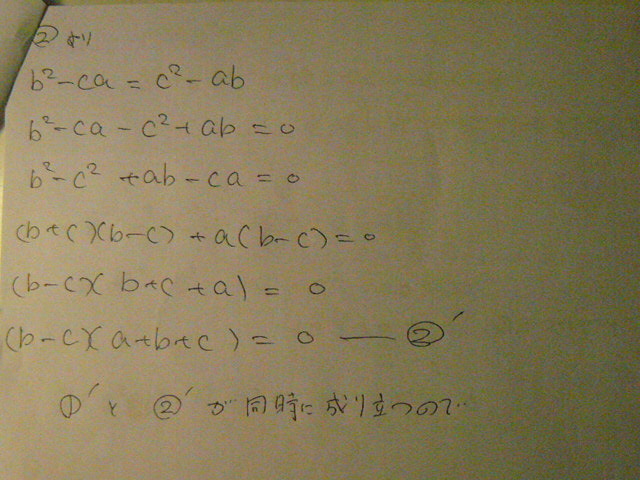 ② より
b²-ca = c²-ab
b²-ca-c²+ab = 0
b²-c²+ab-ca = 0
(b+c)(b-c)+a(b-c) = 0
(b-c)(b+c+a) = 0
(b-c)(a+b+c) = 0 — ②′
①′と ②′が同時に成り立つので